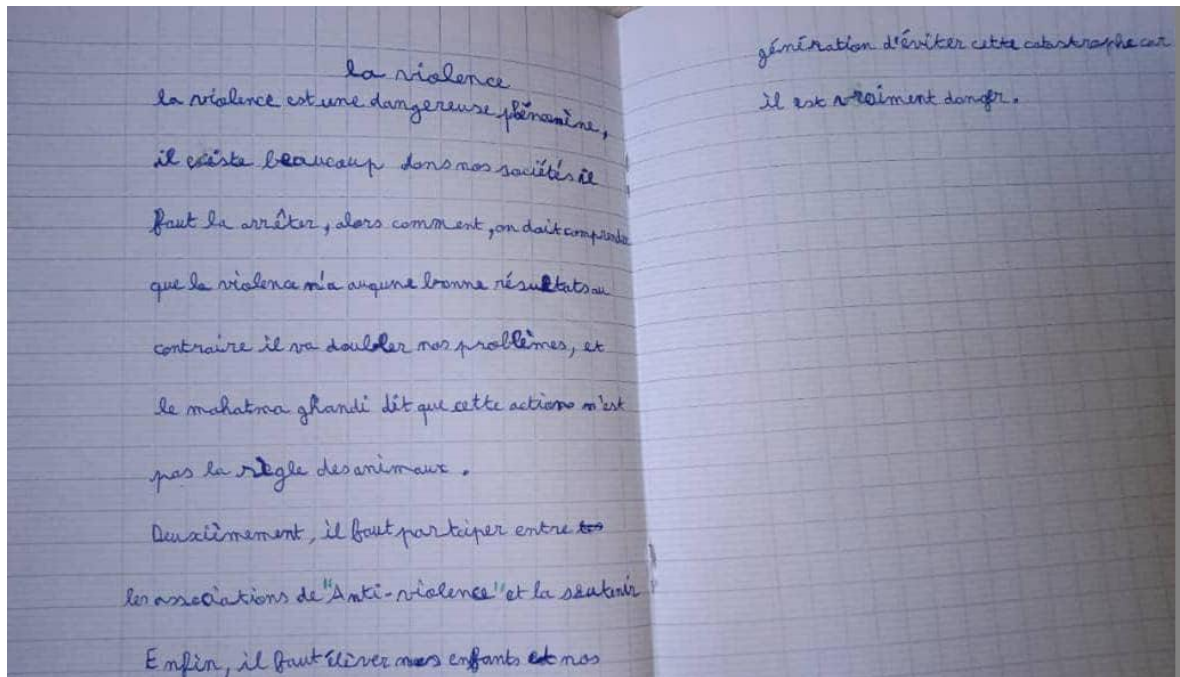 la violence
la violence est une dangereuse phénomène,
il existe beaucoup dans nos sociétés il
faut la arrêter, alors comment, on doit comprendre
que la violence n'a augune bonne résultats au
contraire il va doubler nos problèmes, et
le mahatma ghandi dit que cette actions n'est
pas la règle des animaux.
Deuxièmement, il faut partciper entre
les associations de "Anti-violence" et la soutenir
Enfin, il faut éliver nos enfants et nos
génération d'éviter cette catastraphe car
il est vraiment danger.